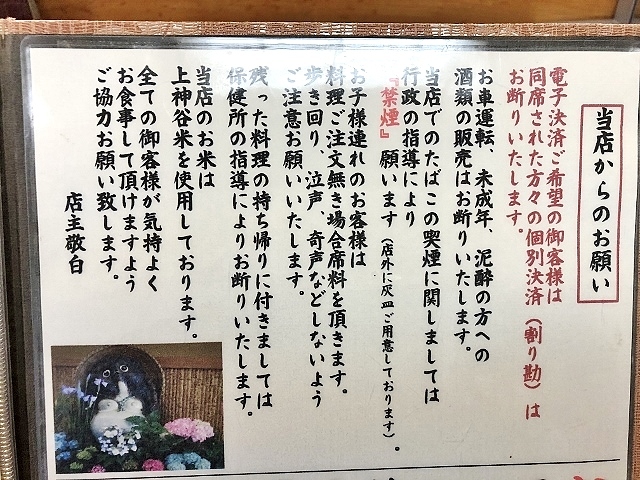 当店からのお願い
電子決済ご希望の御客様は
同席された方々の個別決済（割り勘）は
お断りいたします。
お車運転、未成年、泥酔の方への
酒類の販売はお断りいたします。
当店でのたばこの喫煙に関しましては
行政の指導により
『禁煙』願います（店外に灰皿ご用意しております）。
お子様連れのお客様は
料理ご注文無き場合席料を頂きます。
歩き回り、泣声、奇声などしないよう
ご注意お願いいたします。
残った料理の持ち帰りに付きましては
保健所の指導によりお断りいたします。
当店のお米は
上神谷米を使用しております。
全ての御客様が気持よく
お食事して頂けますよう
ご協力お願い致します。
店主敬白